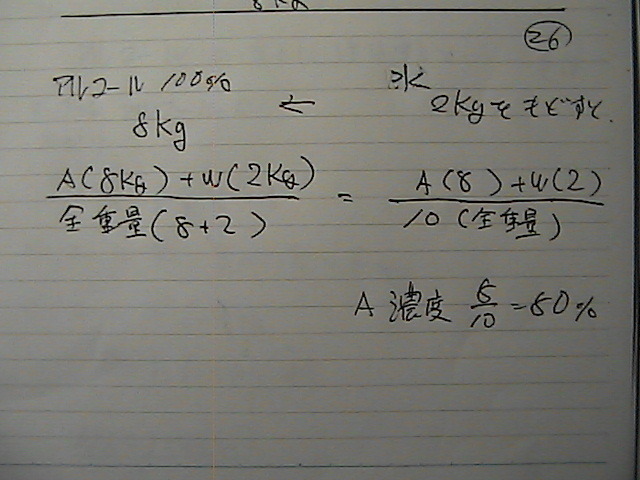 8kg
㉖
アルコール 100% ← 水
8kg 2kgをもどすと.
A(8kg)+W(2kg) = A(8)+W(2)
全重量(8+2) 10(全重量)
A 濃度 8/10=80%